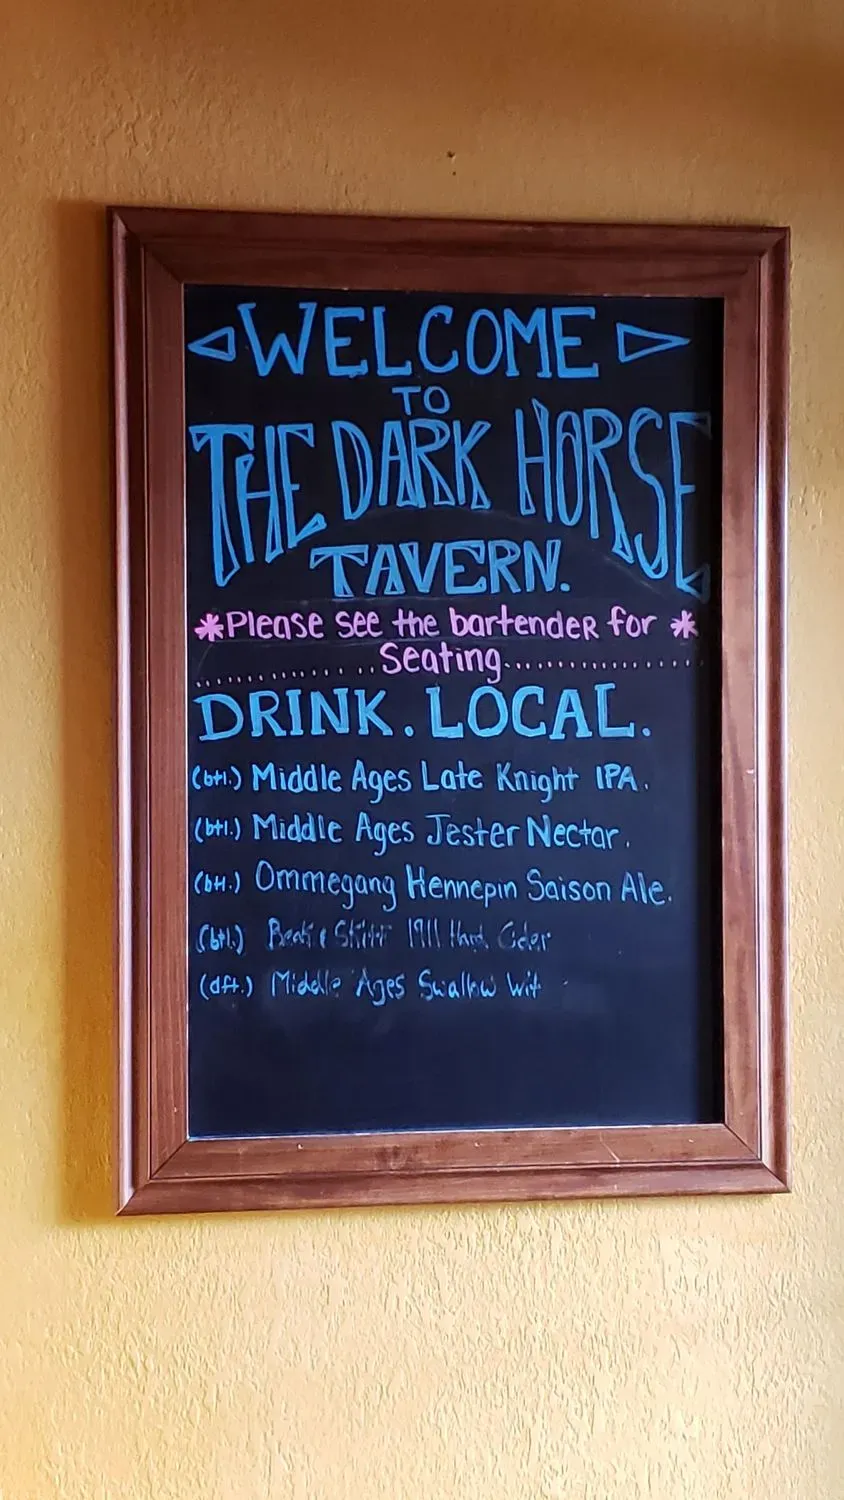 WELCOME
TO
THE DARK HORSE
TAVERN.
*Please see the bartender for *
Seating
DRINK. LOCAL.
(btl.) Middle Ages Late Knight IPA.
(btl.) Middle Ages Jester Nectar.
(btl.) Ommegang Hennepin Saison Ale.
(btl.) 1911 Hard Cider
(dft.) Middle Ages Swallow Wit